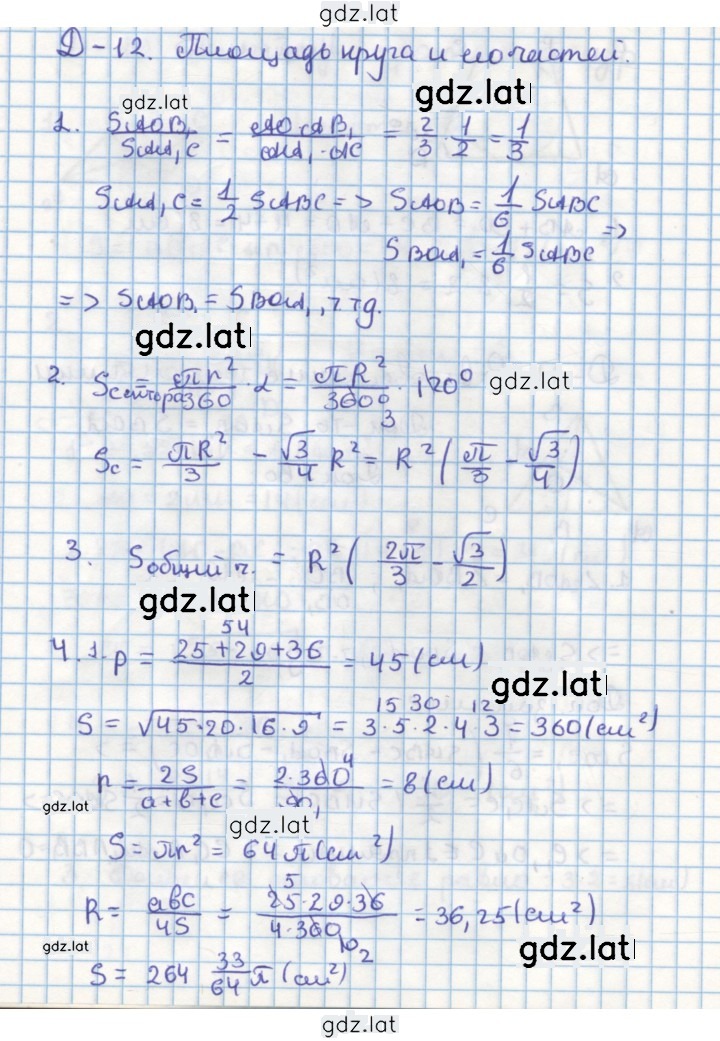 gdz.lat
Д-12. Площадь круга и его частей.
gdz.lat
gdz.lat
1. SAOB₁/SAA₁C = AO·AB₁/AA₁·AC = 2/3 · 1/2 = 1/3
SAA₁C = 1/2 SABC => SAOB₁ = 1/6 SABC
SBOA₁ = 1/6 SABC =>
=> SAOB₁ = SBOA₁, ч.т.д.
gdz.lat
2. Sсектора = πr²/360 · α = πR²/360₃ · 120°
gdz.lat
Sс = πR²/3 - √3/4 R² = R²(π/3 - √3/4)
3. Sобщий ч. = R²(2π/3 - √3/2)
gdz.lat
54
4. 1. p = 25+29+36/2 = 45 (см)
gdz.lat
15 30 12
S = √45·20·16·9 = 3·5·2·4·3 = 360 (см²)
r = 2S/a+b+c = 2·360⁴/90₁ = 8 (см)
gdz.lat
gdz.lat
S = πr² = 64π (см²)
R = abc/4S = 25⁵·29·36/4·360 10 2 = 36,25 (см²)
gdz.lat
gdz.lat
S = 264 33/64 π (см²)
gdz.lat